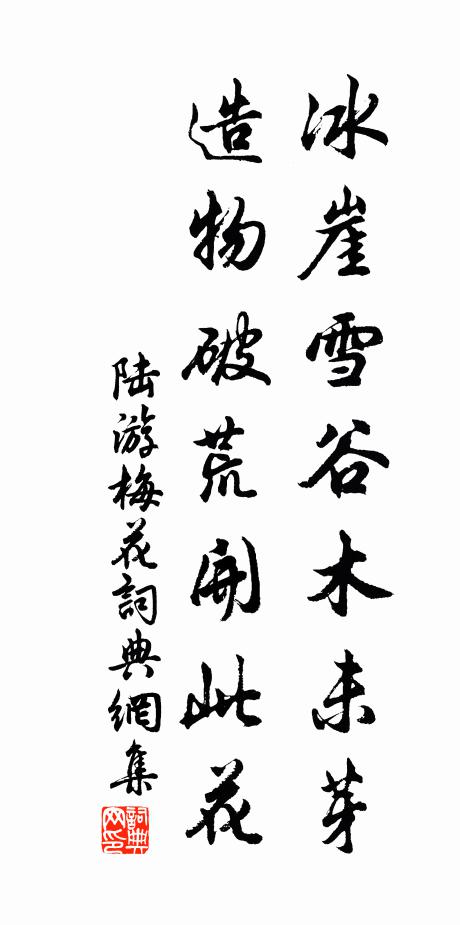 冰崖雪谷木未芽
造物破荒開此花
陆游梅花詞典網集
詞典网印